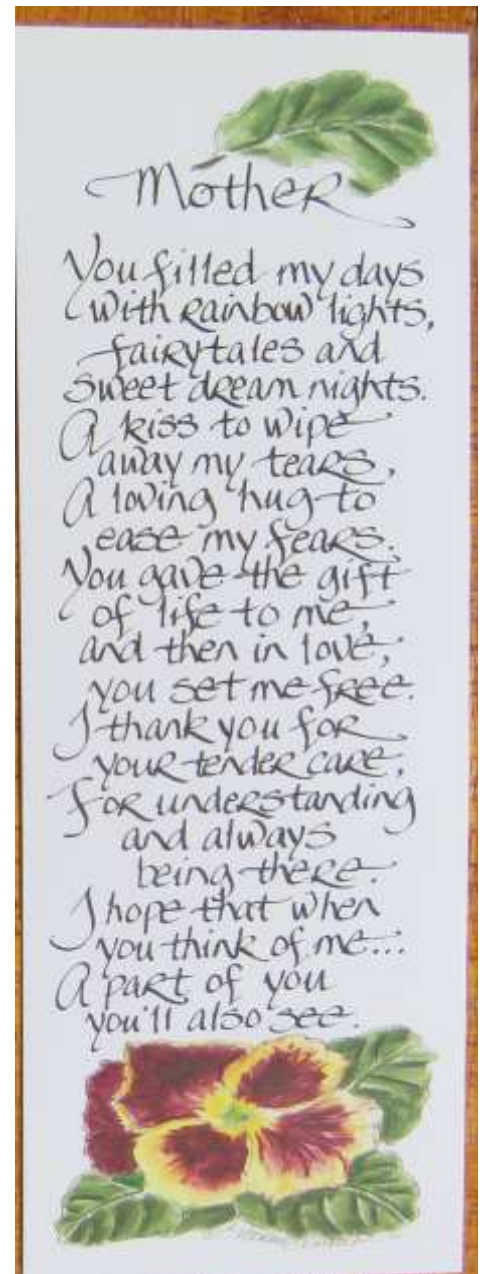 Mother
You filled my days
with rainbow lights,
fairytales and
sweet dream nights.
A kiss to wipe
away my tears,
A loving hug to
ease my fears.
You gave the gift
of life to me,
and then in love,
you set me free.
I thank you for
your tender care,
For understanding
and always
being there.
I hope that when
you think of me...
A part of you
you'll also see.